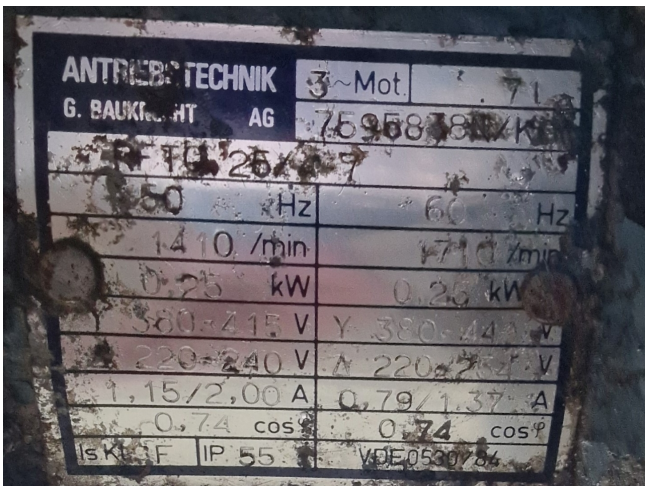 ANTRIEBSTECHNIK
G. BAUKNECHT AG
3~Mot. 71
50 Hz 60 Hz
1410 /min 1710 /min
0,25 kW 0,25 kW
380-415 V Y 380-44 V
220-240 V Δ 220-2 V
1,15/2,00 A 0,79/1,37 A
0,74 cosφ 0,74 cosφ
Is Kl F IP 55 VDE0530/84